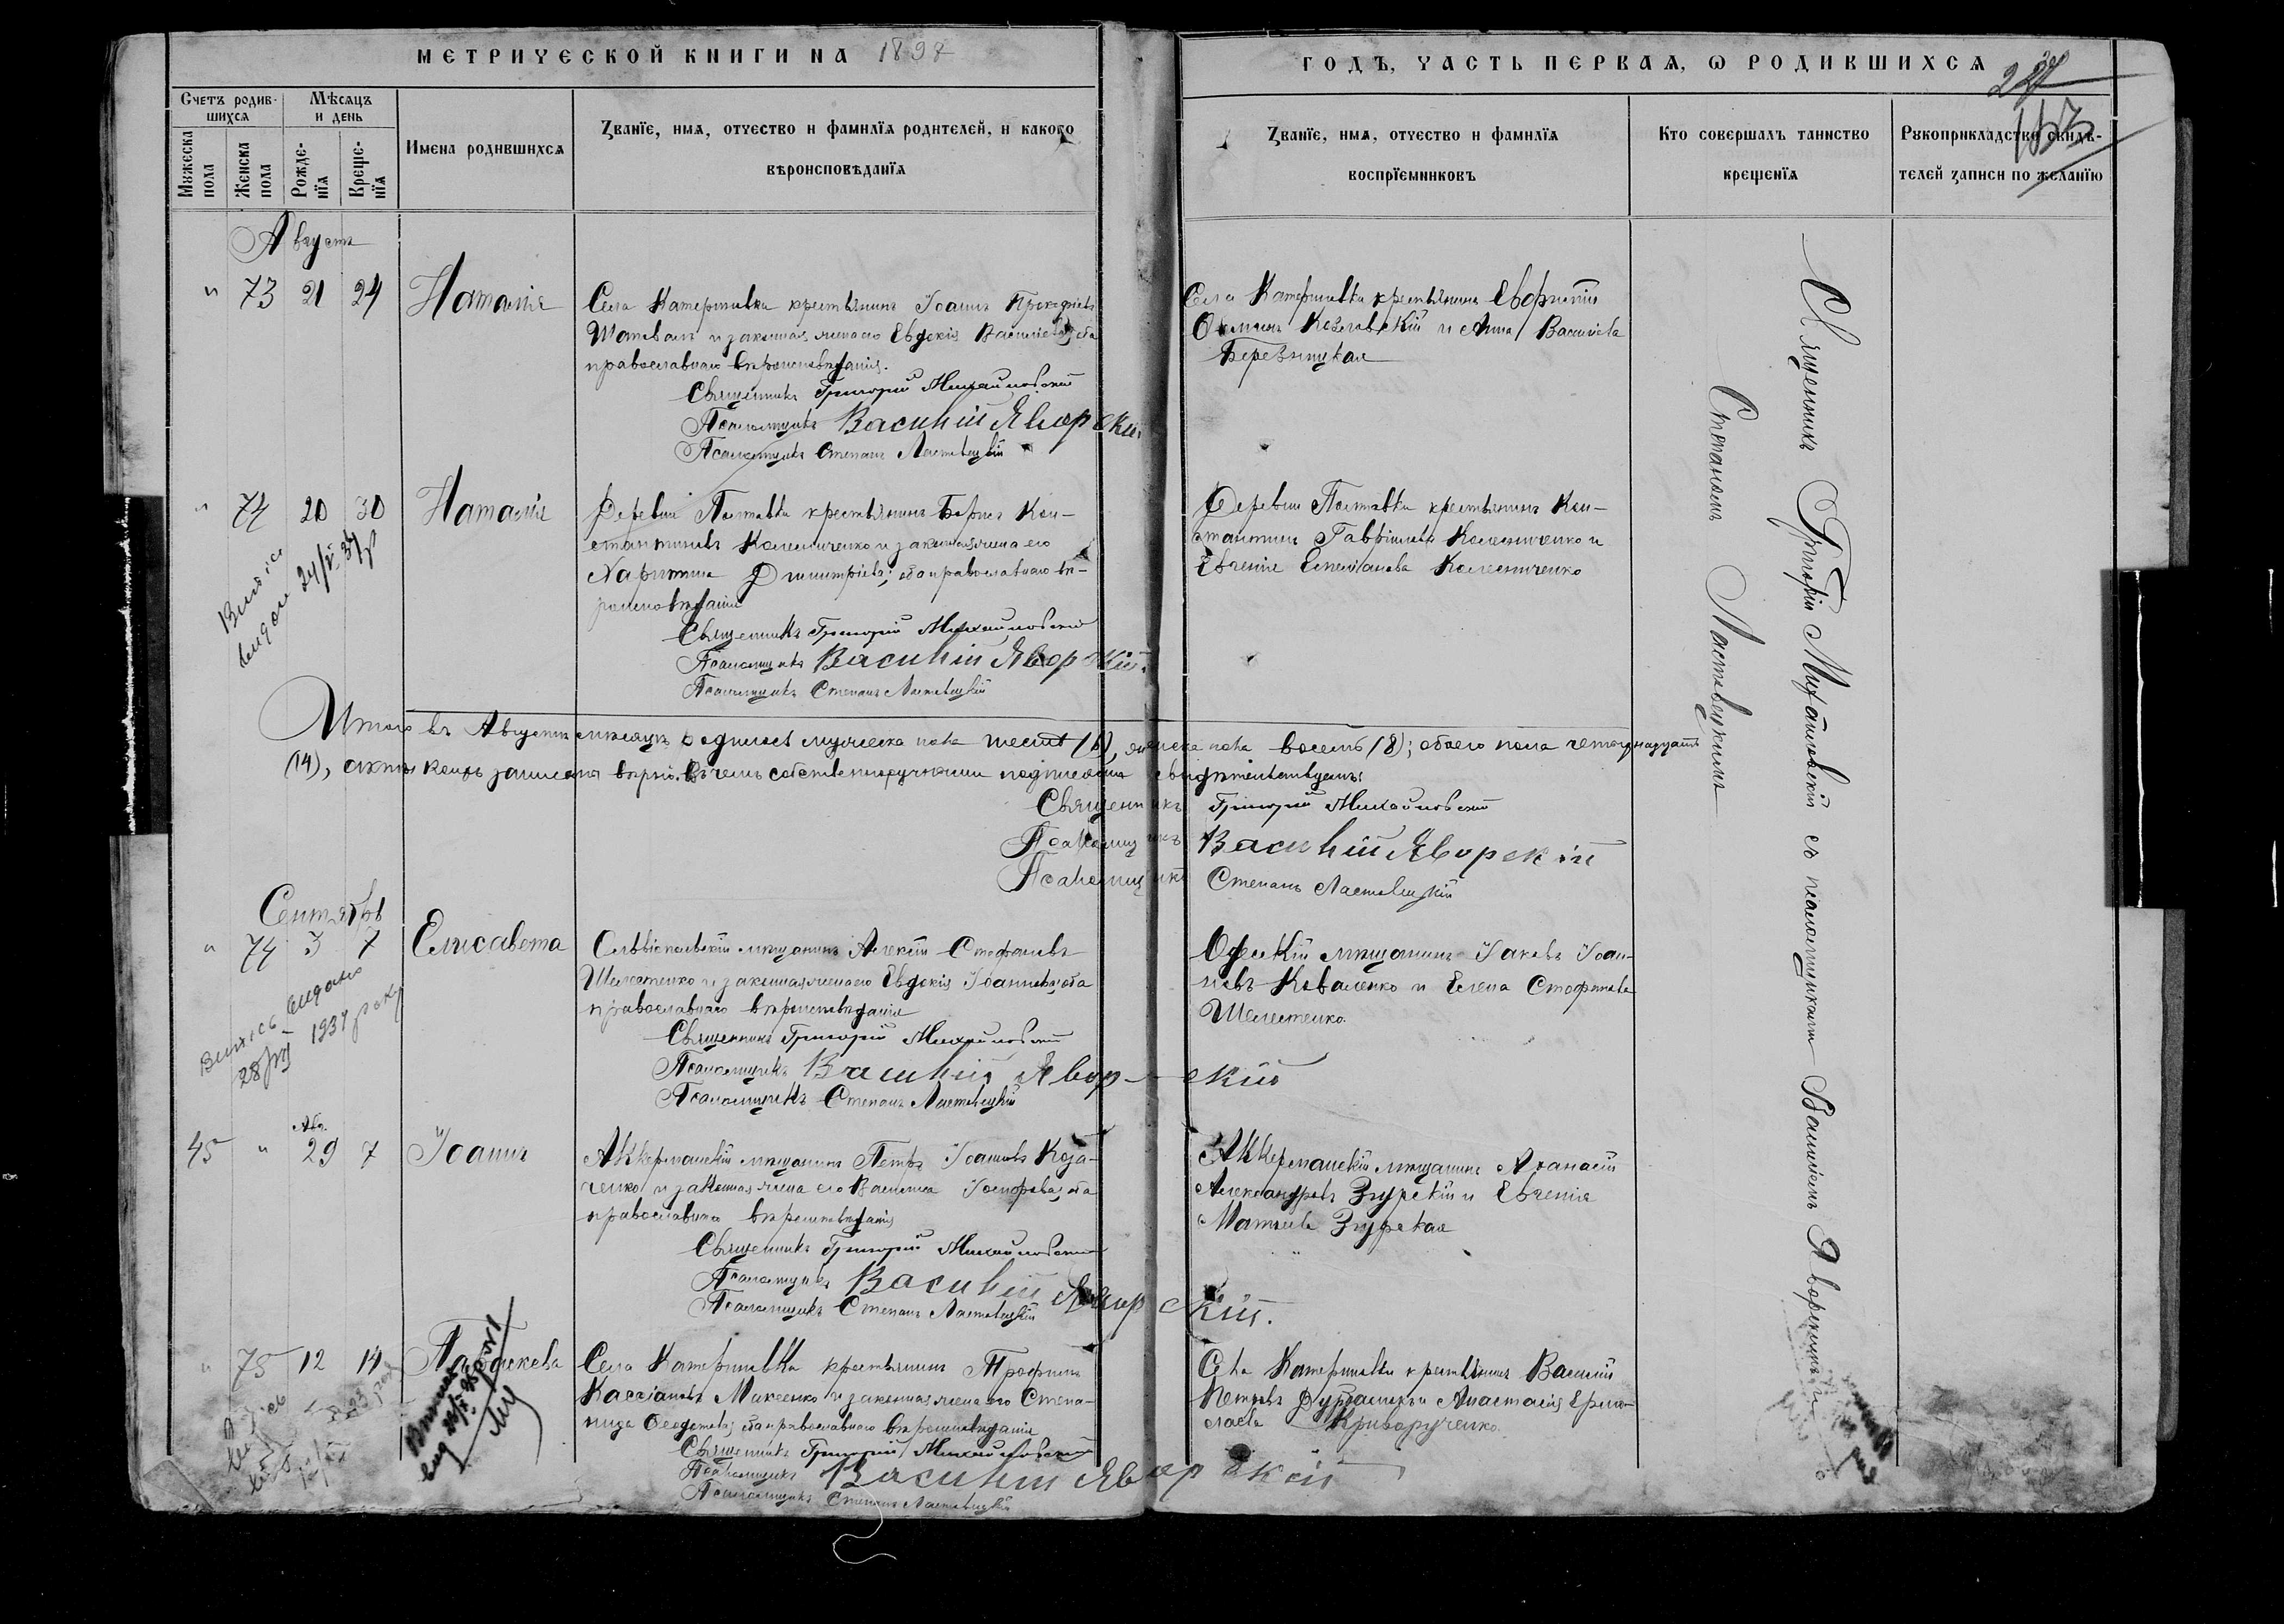 МЕТРИЧЕСКОЙ КНИГИ НА 1898
ГОДЪ, ЧАСТЬ ПЕРВАЯ, Ѡ РОДИВШИХСЯ
157
Счетъ родив-
шихся
Мѣсяцъ
и день
Мужеска
пола
Женска
пола
Рожде-
нїя
Креще-
нїя
Имена родившихся
Званїе, имя, отчество и фамилїя родителей, и какого
вѣроисповѣданїя
Званїе, имя, отчество и фамилїя
воспрїемниковъ
Кто совершалъ таинство
крещенїя
Рукоприкладство свидѣ-
телей записи по желанїю
Августъ
" 73 21 24 Наталія
Села Катериновка крестьянинъ Іоаннъ Прокофіевъ
и законная жена его Евдокія Василіева, оба
православнаго вѣроисповѣданія.
Священникъ Григорій Михайловскій
Псаломщикъ Василій Яворскій
Псаломщикъ Степанъ Ластовецкій
Села Катериновка крестьянинъ Евфимій
Козловскій и Анна Василіева
Березницкая
" 74 20 30 Наталія
Деревни крестьянинъ Борисъ Кон-
стантиновъ Колесниченко и законная жена его
Харитина Димитріева, оба православнаго вѣ-
роисповѣданія
Священникъ Григорій Михайловскій
Псаломщикъ Василій Яворскій.
Псаломщикъ Степанъ Ластовецкій
Деревни крестьянинъ Кон-
стантинъ Гавріиловъ Колесниченко и
Евгенія Колесниченко
Итого въ Августѣ мѣсяцѣ родилось мужеска пола шесть (6), женска пола восемь (8); обоего пола четырнадцать
(14), актъ коихъ записанъ вѣрно. Въ чемъ собственноручнымъ подписомъ свидѣтельствуемъ:
Священникъ Григорій Михайловскій
Псаломщикъ Василій Яворскій
Псаломщикъ Степанъ Ластовецкій
Сентябрь
" 74 3 7 Елисавета
мѣщанинъ Алексій Стефановъ
Шелестенко и законная жена его Евдокія Іоаннова, оба
православнаго вѣроисповѣданія
Священникъ Григорій Михайловскій
Псаломщикъ Василій Яворскій
Псаломщикъ Степанъ Ластовецкій
Одесскій мѣщанинъ Іаковъ Іоан-
новъ Коваленко и Елена Стефанова
Шелестенко.
Випись видано
28/VII 1937 року
Авг.
45 " 29 7 Іоаннъ
Аккерманскій мѣщанинъ Петръ Іоанновъ Коза-
ченко и законная жена его Василиса Іосифова, оба
православнаго вѣроисповѣданія
Священникъ Григорій Михайловскій
Псаломщикъ Василій Яворскій.
Псаломщикъ Степанъ Ластовецкій
Аккерманскій мѣщанинъ Аѳанасій
Александровъ Згурскій и Евгенія
Згурская
" 75 12 14 Параскева
Села Катериновка крестьянинъ Трофимъ
Кассіановъ Макеенко и законная жена его Степа-
нида Ѳеодотова, оба православнаго вѣроисповѣданія
Священникъ Григорій Михайловскій
Псаломщикъ Василій Яворскій
Псаломщикъ Степанъ Ластовецкій
Села Катериновка крестьянинъ Василій
Петровъ и Анастасія Ермо-
лаева Криворученко.
Священникъ Григорій Михайловскій съ псаломщиками Василіемъ Яворскимъ и
Степаномъ Ластовецкимъ